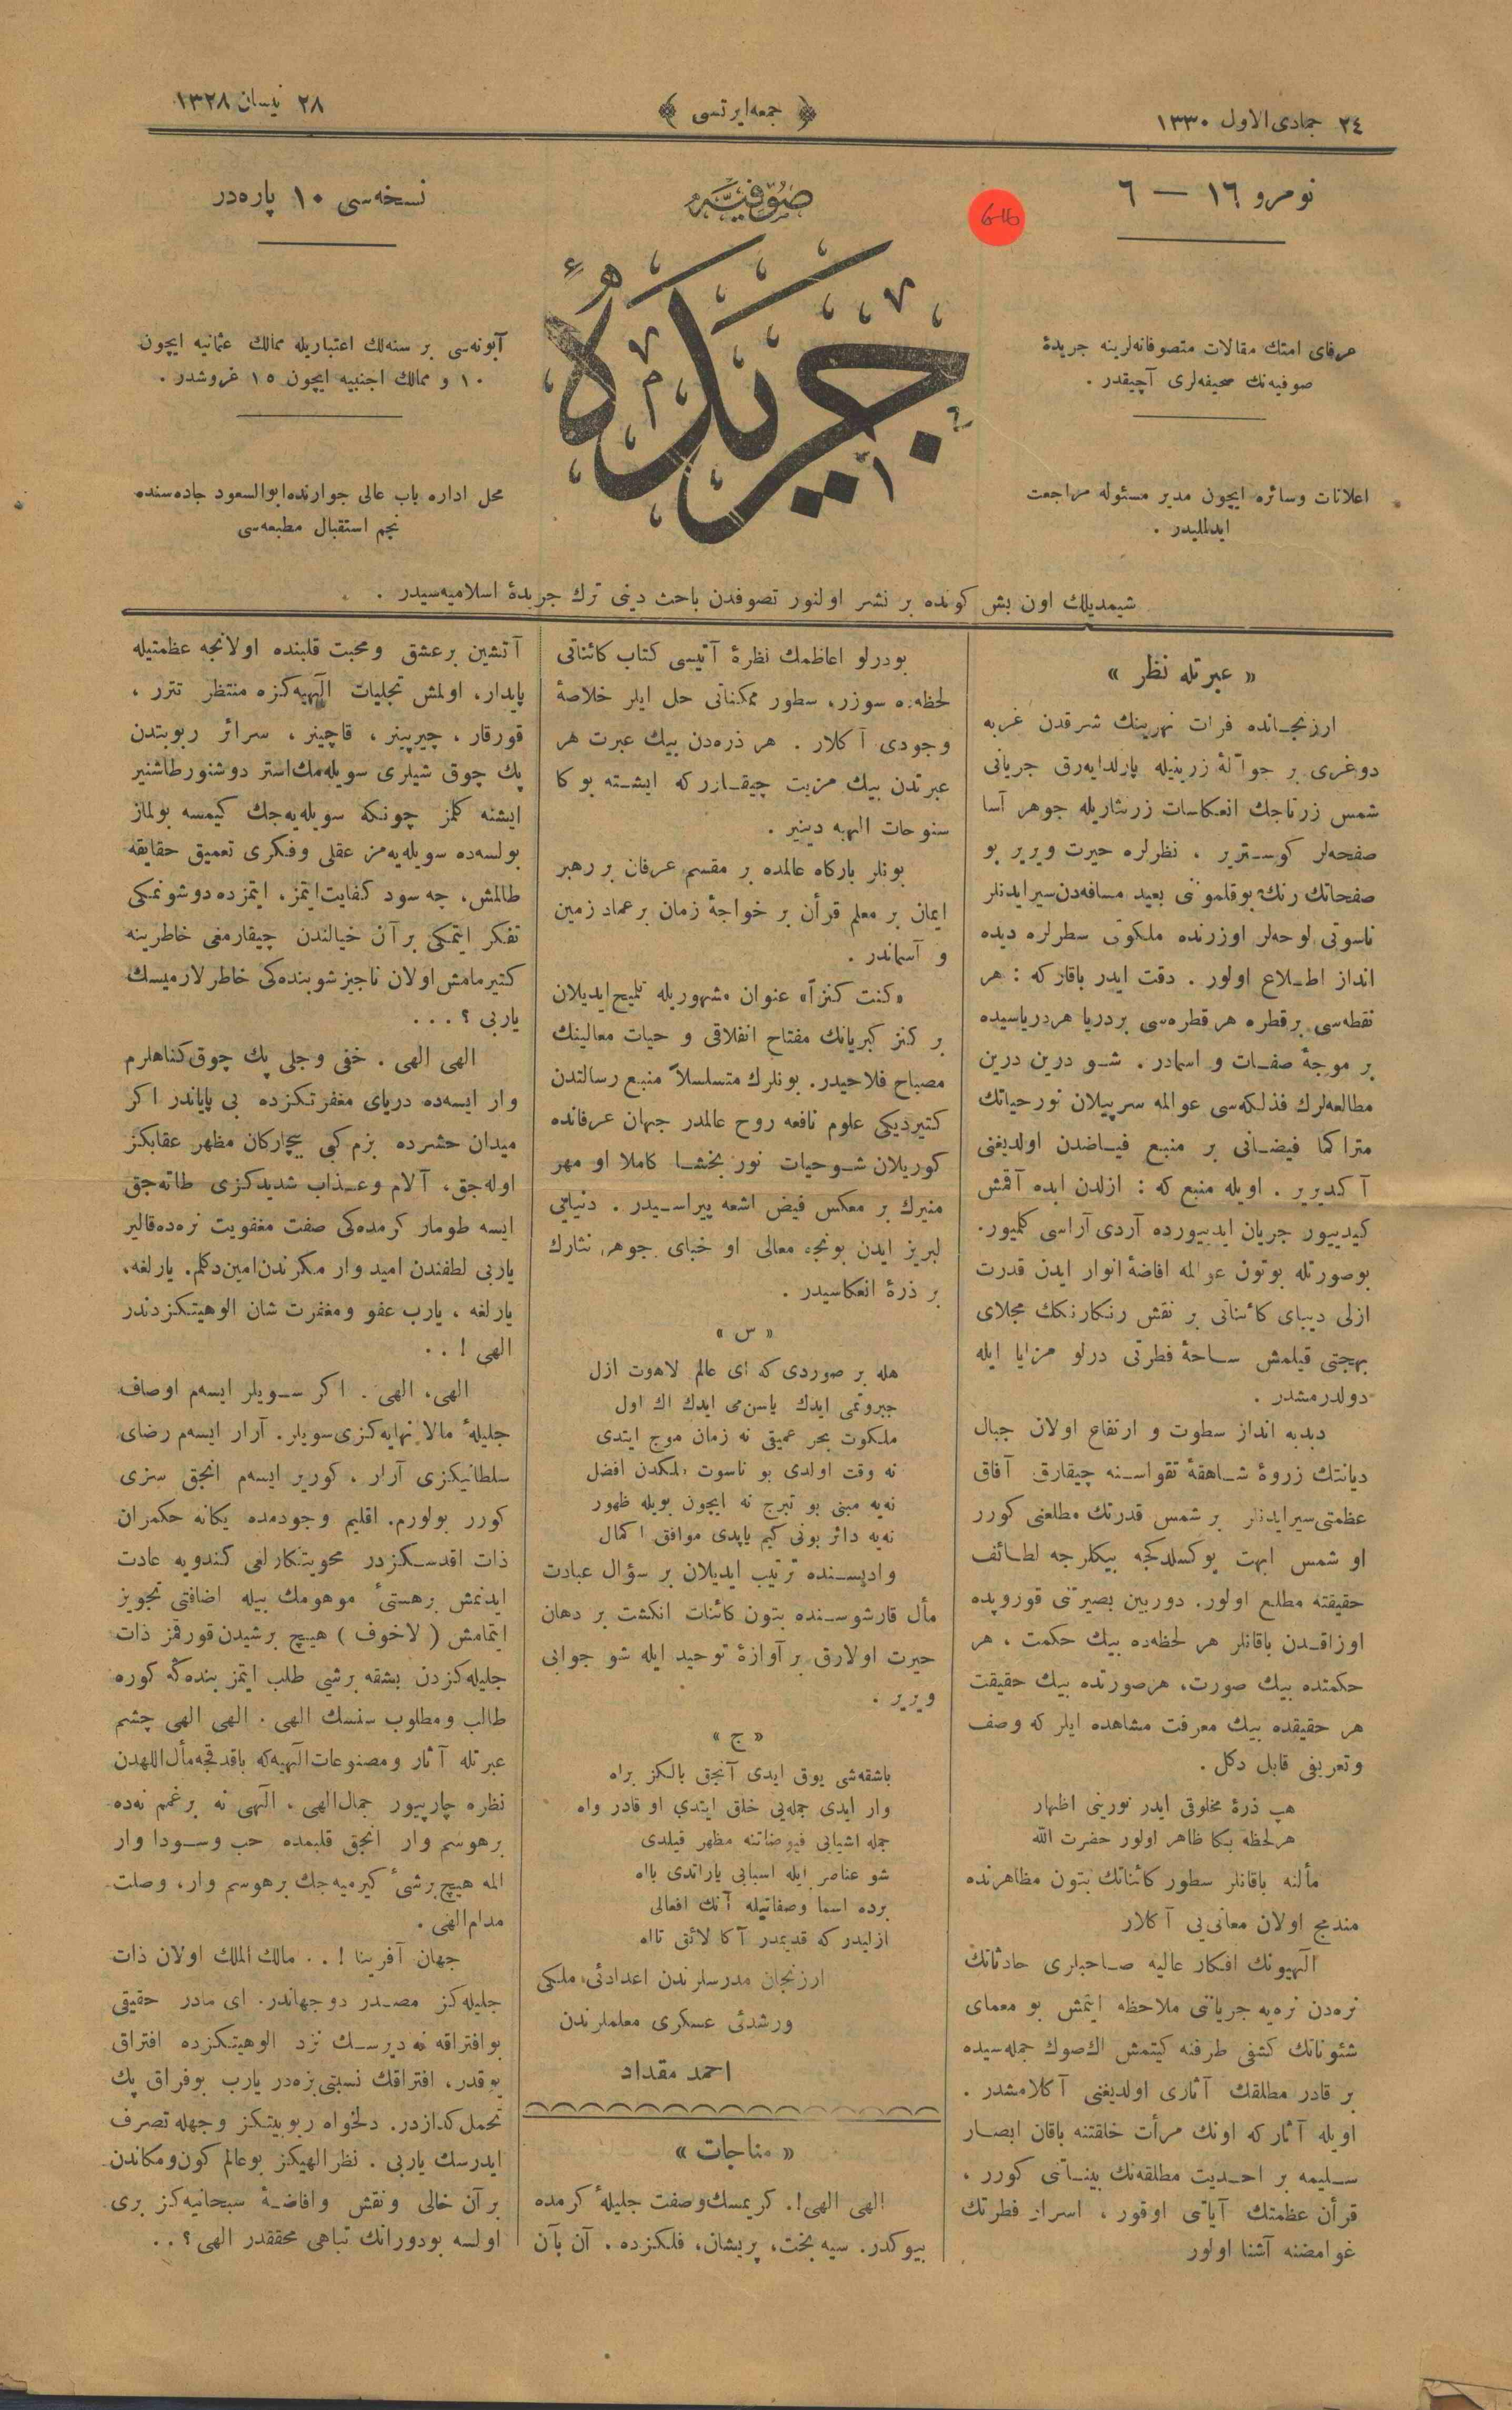 ٢٤ جمادی‌الاول ١٣٣٠
﴿ جمعه‌ایرتسی ﴾
٢٨ نیسان ١٣٢٨
نومرو ١٦ — ٦
صوفیّه
جریدهٔ
نسخه‌سی ١٠ پاره‌در
عرفای امتك مقالات متصوفانه‌لرینه جریدهٔ
صوفیه‌نك صحیفه‌لری آچیقدر .
آبونه‌سی بر سنه‌لك اعتباریله ممالك عثمانیه ایچون
١٠ و ممالك اجنبیه ایچون ١٥ غروشدر .
اعلانات وسائره ایچون مدیر مسئوله مراجعت
ایدلملیدر .
محل اداره باب عالی جوارنده ابوالسعود جاده‌سنده
نجم استقبال مطبعه‌سی
شیمدیلك اون بش كونده بر نشر اولنور تصوفدن باحث دینی ترك جریدهٔ اسلامیه‌سیدر .
« عبرتله نظر »
ارزنجـانده فرات نهرینك شرقدن غربه
دوغری بر جوآلهٔ زرینیله پارلدایه‌رق جریانی
شمس زرتاجك انعكاسات زرنثاریله جوهر آسا
صفحه‌لر كوسـتریر . نظرلره حیرت ویریر بو
صفحاتك رنك بوقلمونی بعید مسافه‌دن سیر ایدنلر
ناسوتی لوحه‌لر اوزرنده ملكوتی سطرلره دیده
انداز اطـلاع اولور . دقت ایدر باقاركه : هر
نقطه‌سی بر قطره هر قطره‌سی بر دریا هر دریاسیده
بر موجهٔ صفـات و اسمادر . شـو درین درین
مطالعه‌لرك فذلكه‌سی عوالمه سرپیلان نور حیاتك
متراكما فیضـانی بر منبع فیـاضدن اولدیغنی
آكدیریر . اویله منبع كه : ازلدن ابده آقمش
كیدییور جریان ایدییورده آردی آراسی كلمیور.
بوصورتله بوتون عوالمه افاضهٔ انوار ایدن قدرت
ازلی دیبای كائناتی بر نقش رنكارنكك مجلای
بهجتی قیلمش سـاحهٔ فطرتی درلو مزایا ایله
دولدرمشدر .
دبدبه انداز سطوت و ارتفاع اولان جبال
دیانتك زروهٔ شـاهقهٔ تقواسـنه چیقارق آفاق
عظمتی سیر ایدنلر بر شمس قدرتك مطلعنی كورر
او شمس ابهت یوكسلدكجه بیكلرجه لطـائف
حقیقته مطلع اولور. دوربین بصیرتی قورویده
اوزاقـدن باقانلر هر لحظه‌ده بیك حكمت ، هر
حكمتده بیك صورت، هر صورتده بیك حقیقت
هر حقیقده بیك معرفت مشاهده ایلر كه وصف
وتعریفی قابل دكل .
هپ ذرهٔ مخلوقی ایدر نورینی اظهار
هر لحظه بكا ظاهر اولور حضرت الله
مألنه باقانلر سطور كائناتك بتون مظاهرنده
مندمج اولان معانی‌یی آكلار
الٓهیونك افكار عالیه صـاحبلری حادثاتك
نره‌دن نره‌یه جریاننی ملاحظه ایتمش بو معمای
شئوناتك كشفی طرفنه كیتمش اك صوك جمله‌سیده
بر قادر مطلقك آثاری اولدیغنی آكلامشدر .
اویله آثاركه اونك مرأت خلقتنه باقان ابصـار
سـلیمه بر احـدیت مطلقه‌نك بینـاتنی كورر ،
قرأن عظمتك آیاتی اوقور ، اسرار فطرتك
غوامضنه آشنا اولور
بودرلو اعاظمك نظرهٔ آتیسی كتاب كائناتی
لحظه‌ده سوزر، سطور ممكناتی حل ایلر خلاصهٔ
وجودی آكلار . هر ذره‌دن بیك عبرت هر
عبرتدن بیك مزیت چیقـاررکه ایشـته بوكا
سنوحات الهیه دینیر .
بونلر باركاه عالمده بر مقسم عرفان بر رهبر
ایمان بر معلم قرأن بر خواجهٔ زمان بر عماد زمین
و آسماندر .
«كنت كنزاً» عنوان مشهوریله تلمیح ایدیلان
بر كنز كبریانك مفتاح انفلاقی و حیات معالینك
مصباح فلاحیدر. بونلرك متسلسلاً منبع رسالتدن
كتیردیكی علوم نافعه روح عالمدر جهان عرفانده
كوریلان شـو حیات نور بخشـا كاملا او مهر
منیرك بر معكس فیض اشعه پیراسـیدر . دنیایی
لبریز ایدن بونجه معالی او خبای جوهر نثارك
بر ذرهٔ انعكاسیدر .
« س »
هله بر صوردی كه ای عالم لاهوت ازل
جبروتمی ایدك یاسن‌می ایدك اك اول
ملكوت بحر عمیقی نه زمان موج ایتدی
نه وقت اولدی بو ناسوت ملكدن افضل
نه‌یه مبنی بو تبرج نه ایچون بویله ظهور
نه‌یه دائر بونی كیم یاپدی موافق اكمال
وادیسـنده ترتیب ایدیلان بر سؤال عبادت
مأل قارشوسـنده بتون كائنات انكشت بر دهان
حیرت اولارق بر آوازهٔ توحید ایله شو جوابی
ویریر .
« ج »
باشقه‌شی یوق ایدی آنجق یالكز براه
وار ایدی جمله‌یی خلق ایتدی او قادر واه
جمله اشیایی فیوضاتنه مظهر قیلدی
شو عناصر ایله اسبابی یاراتدی بااه
برده اسما وصفاتیله آنك افعالی
ازلیدركه قدیمدر آكا لائق تااه
ارزنجان مدرسلرندن اعدادئ ملكی
ورشدئ عسكری معلملرندن
احمد مقداد
« مناجات »
الهی الهی!. كریمسك وصفت جلیلهٔ كرمده
بیوكدر. سیه بخت، پریشان، فلكزده. آن بآن
آتشین بر عشق ومحبت قلبنده اولانجه عظمتیله
پایدار، اولمش تجلیات الٓهیه‌كزه منتظر تترر ،
قورقار ، چیرپینر ، قاچینر ، سرائر ربوبتدن
پك چوق شیلری سویله‌مك استر دوشنور طاشنیر
ایشنه كلمز چونكه سویله‌یه‌جك كیمسه بولماز
بولسه‌ده سویله‌یه‌مز عقلی وفكری تعمیق حقایقه
طالمش، چه سود كفایت ایتمز، ایتمزده دوشونمكی
تفكر ایتمكی بر آن خیالندن چیقارمغی خاطرینه
كتیرمامش اولان ناجیز شوبنده‌كی خاطرلارمیسك
یاربی ؟ ...
الهی الهی . خفی وجلی پك چوق كناهلرم
وار ایسه‌ده دریای مغفرتكزده بی پایاندر اكر
میدان حشرده بزم كبی بیچاركان مظهر عقابكز
اوله‌جق، آلام وعـذاب شدیدكزی طاته‌جق
ایسه طومار كرمده‌كی صفت مغفویت نره‌ده قالیر
یاربی لطفندن امید وار مكرندن امین دكلم. یارلغه،
یارلغه ، یارب عفو ومغفرت شان الوهیتكزدندر
الهی ! ..
الهی، الهی . اكر سـویلر ایسه‌م اوصاف
جلیلهٔ مالا نهایه‌كزی سویلر. آرار ایسه‌م رضای
سلطانیكزی آرار ، كوریر ایسه‌م انجق سزی
كورر بولورم. اقلیم وجودمده یكانه حكمران
ذات اقدسـكزدر محویتكارلغی كندویه عادت
ایدنمش بر هستیٔ موهومك بیله اضافتی تجویز
ایتمامش ( لاخوف ) هییچ برشیدن قورقمز ذات
جلیله‌كزدن بشقه برشی طلب ایتمز بنده‌كه كوره
طالب ومطلوب سنسك الهی . الهی الهی چشم
عبرتله آثار ومصنوعات الٓهیه‌كه باقدقجه مأل اللهدن
نظره چارپیور جمال الهی ، الٓهی نه بر غمم نه‌ده
بر هوسم وار انجق قلبمده حب وسـودا وار
المه هییچ برشیٔ كیرمیه‌جك بر هوسم وار، وصلت
مدام الهی .
جهان آفرینا ! .. مالك الملك اولان ذات
جلیله‌كز مصـدر دوجهاندر. ای مادر حقیقی
بو افتراقه نه دیرسـك نزد الوهیتكزده افتراق
یوقدر، افتراقك نسبتی بزه‌در یارب بو فراق پك
تحمل كدازدر. دلخواه ربوبیتكز وجهله تصرف
ایدرسك یاربی . نظر الهیكز بو عالم كون ومكاندن
بر آن خالی ونقش وافاضـهٔ سبحانیه‌كز بری
اولسه بودورانك تباهی محققدر الهی ؟ ..